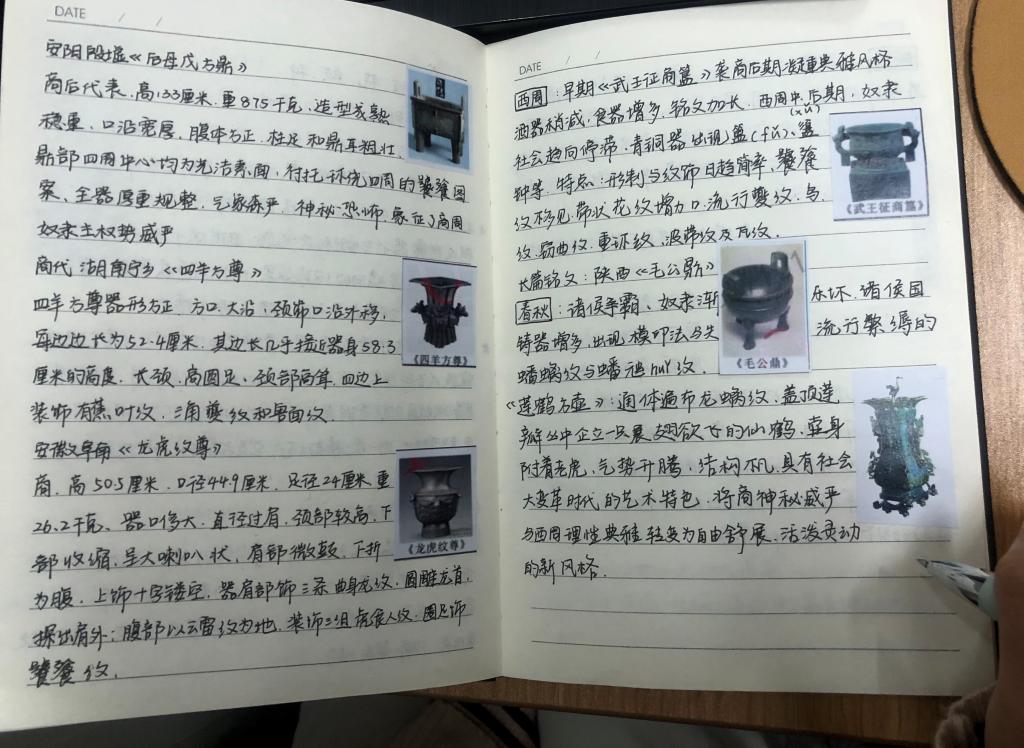 DATE / /
安阳殷墟《后母戊方鼎》
商后代表.高133厘米.重875千克,造型成熟
稳重,口沿宽厚,腹体方正.柱足和鼎耳粗壮.
鼎部四周中心均为光洁素面,衬托环绕四周的饕餮图
案.全器厚重规整,气象森严,神秘恐怖.象征了商周
奴隶主权势威严
商代 湖南宁乡《四羊方尊》
四羊方尊器形方正.方口.大沿,颈饰口沿外移,
每边边长为52.4厘米.其边长几乎接近器身58.3
厘米的高度.长颈.高圈足,颈部高耸.四边上
装饰有蕉叶纹.三角夔纹和兽面纹.
安徽阜南《龙虎纹尊》
商,高50.5厘米.口径44.9厘米.足径24厘米.重
26.2千克.器口侈大.直径过肩.颈部较高,下
部收缩.呈大喇叭状,肩部微鼓.下折
为腹.上饰十字镂空.器肩部饰三条曲身龙纹.圆雕龙首,
探出肩外;腹部以云雷纹为地.装饰三组虎食人纹.圈足饰
饕餮纹.
《四羊方尊》
《龙虎纹尊》
DATE / /
西周:早期《武王征商簋》袭商后期凝重典雅风格
酒器稍减,食器增多.铭文加长.西周中.后期,奴隶
社会趋向停滞.青铜器出现簠(fǔ)、盨(xǔ)
钟等,特点:形制与纹饰日趋简率,饕餮
纹移见,带状花纹增加.流行夔纹.鸟
纹.窃曲纹.重环纹.波带纹及瓦纹.
长篇铭文:陕西《毛公鼎》
春秋:诸侯争霸、奴隶渐 乐坏.诸侯国
铸器增多.出现模印法与失 流行繁缛的
蟠螭纹与蟠虺huǐ纹.
《莲鹤方壶》:通体遍布龙螭纹.盖顶莲
瓣丛中企立一只展翅欲飞的仙鹤.壶身
附着龙虎,气势升腾,结构 具有社会
大变革时代的艺术特色,将商神秘威严
与西周理性典雅转变为自由舒展、活泼灵动
的新风格.
《武王征商簋》
《毛公鼎》